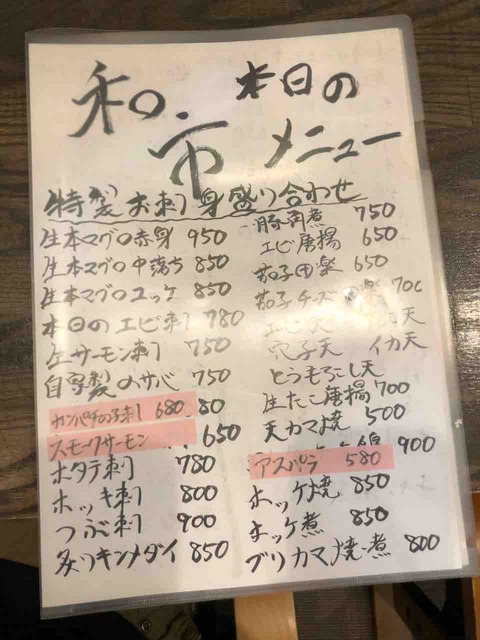 和.市
本日の
メニュー
特製お刺身盛り合わせ
生本マグロ赤身 950
生本マグロ中落ち 850
生本マグロユッケ 850
本日のエビ刺 780
生サーモン刺 750
自家製〆サバ 750
カンパチの刺し 680 80
スモークサーモン 650
ホタテ刺 780
ホッキ刺 800
つぶ刺 900
炙りキンメダイ 850
豚角煮 750
エビ唐揚 650
茄子田楽 650
茄子チーズ田楽 700
エビ天 天
穴子天 イカ天
とうもろこし天
生たこ唐揚 700
天カマ焼 500
900
アスパラ 580
ホッケ焼 850
ホッケ煮 850
ブリカマ焼・煮 800